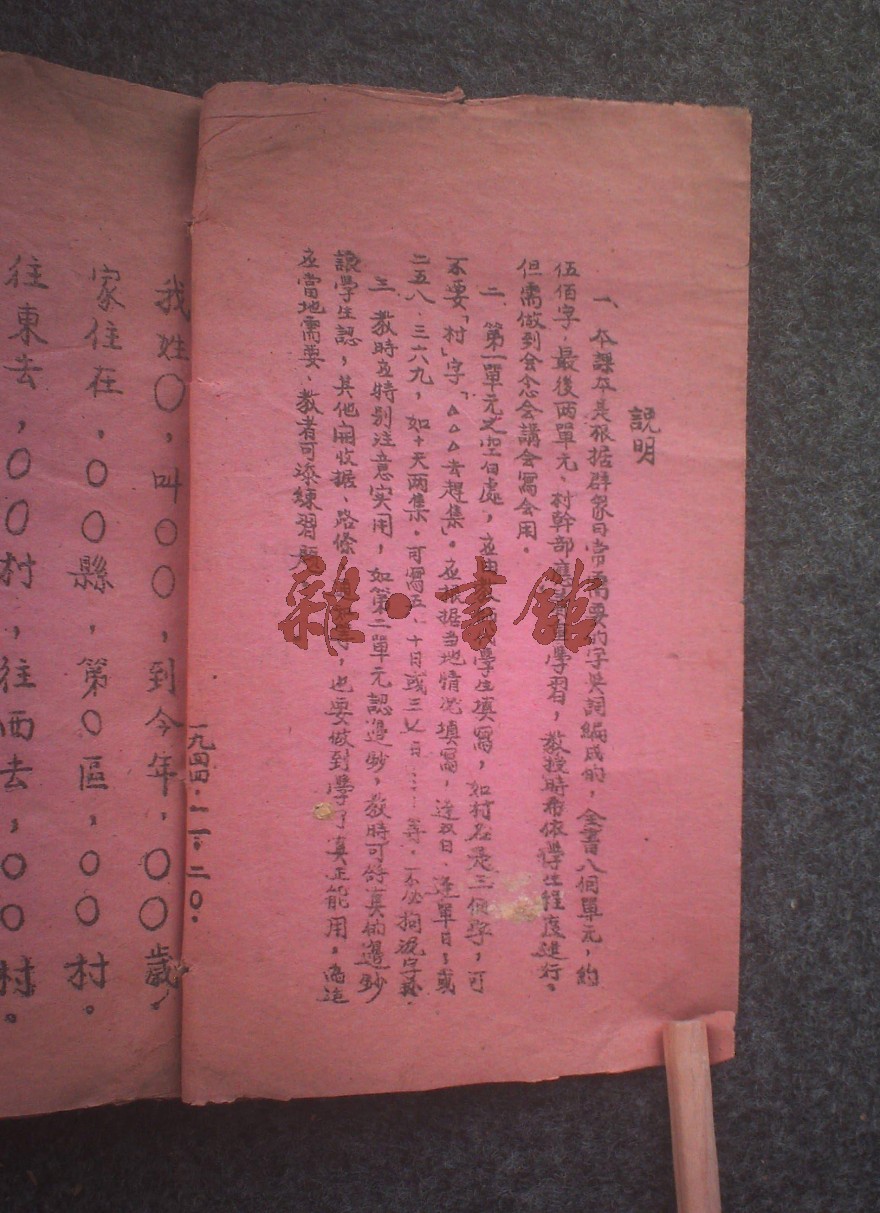 說明
一、本課本是根据群象日常需要的字與詞編成的，全書八個單元，約
伍佰字，最後兩單元、村幹部應學習，教授時希依學生程度進行。
但需做到会念会講会寫会用。
二、第一單元之空白處，应由學生填寫，如村名是三個字，可
不要「村」字，「△△△去趕集」。应根据当地情况填寫，逢双日、逢單日；或
二五八、三六九，如十天两集。可寫五、十日或三七日……等。不必拘泥字義．
三、教時应特别注意实用，如第二單元認邊鈔，教時可将真的邊鈔
讓學生認，其他開收据、路條，也要做到學了真正能用。為适
应當地需要、教者可添練習題
一九四四．一一．二〇．
我姓〇，叫〇〇，到今年，〇〇歲．
家住在，〇〇縣，第〇區，〇〇村。
往東去，〇〇村，往西去，〇〇村。
雜·書館